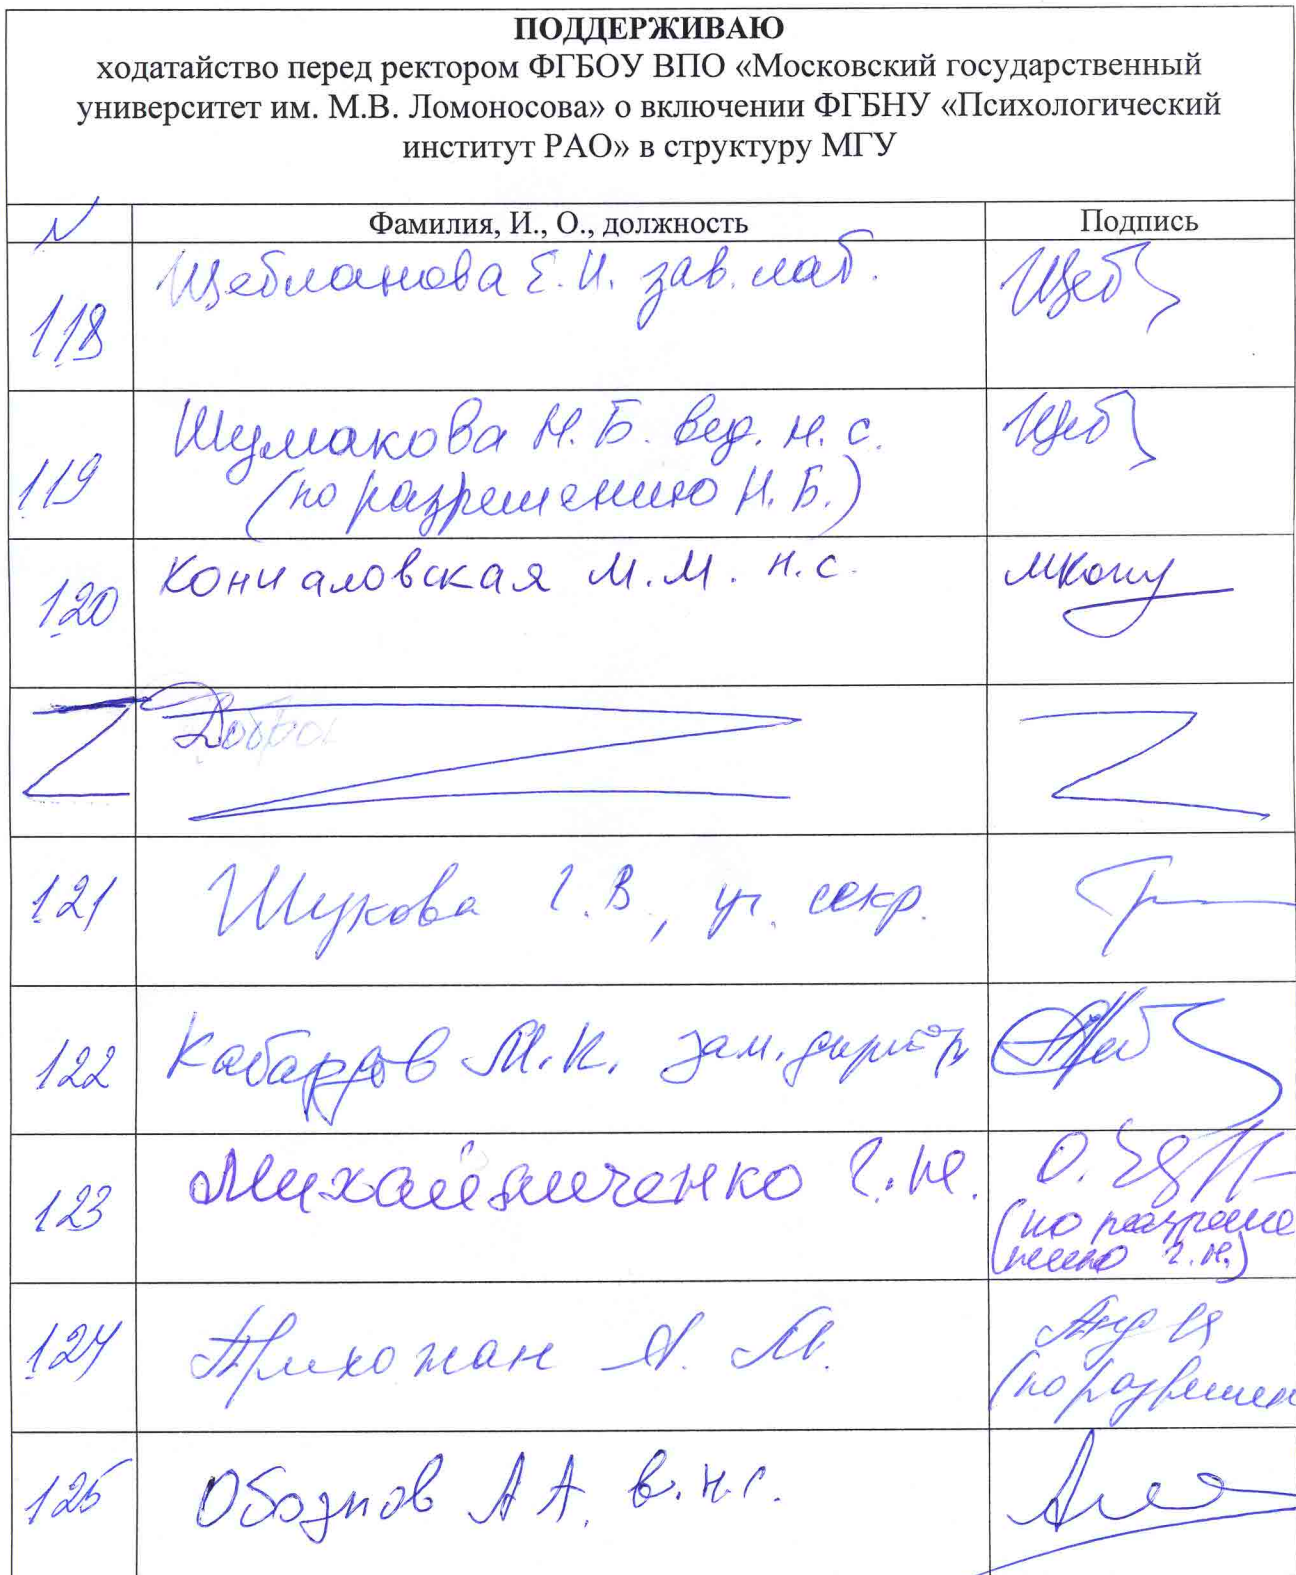 ПОДДЕРЖИВАЮ
ходатайство перед ректором ФГБОУ ВПО «Московский государственный
университет им. М.В. Ломоносова» о включении ФГБНУ «Психологический
институт РАО» в структуру МГУ
N Фамилия, И., О., должность Подпись
118 Щебланова Е.И. зав. лаб. Щеб
119 Шумакова Н.Б. вед. н.с. Щеб
(по разрешению Н.Б.)
120 Кончаловская М.М. н.с.
Добро
121 Шукова Г.В., уч. секр.
122 Кабардов М.К. зам. дир
123 Михайличенко Г.Н.
(по разреше
нию Г.Н.)
124 Прихожан А.М.
(по разрешен
125 Обознов А А. в.н.с.